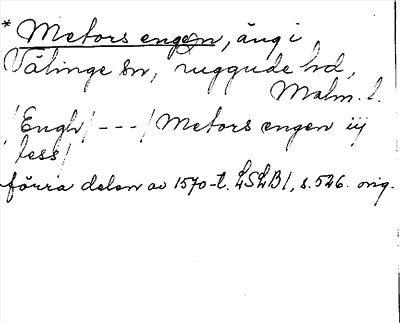 * Metors engen, äng i
Välinge sn, Luggude hd,
Malm. l.
/Engh/ - - - / Metors engen iij
less/
förra delen av 1570-t. LSLB 1, s. 526. orig.